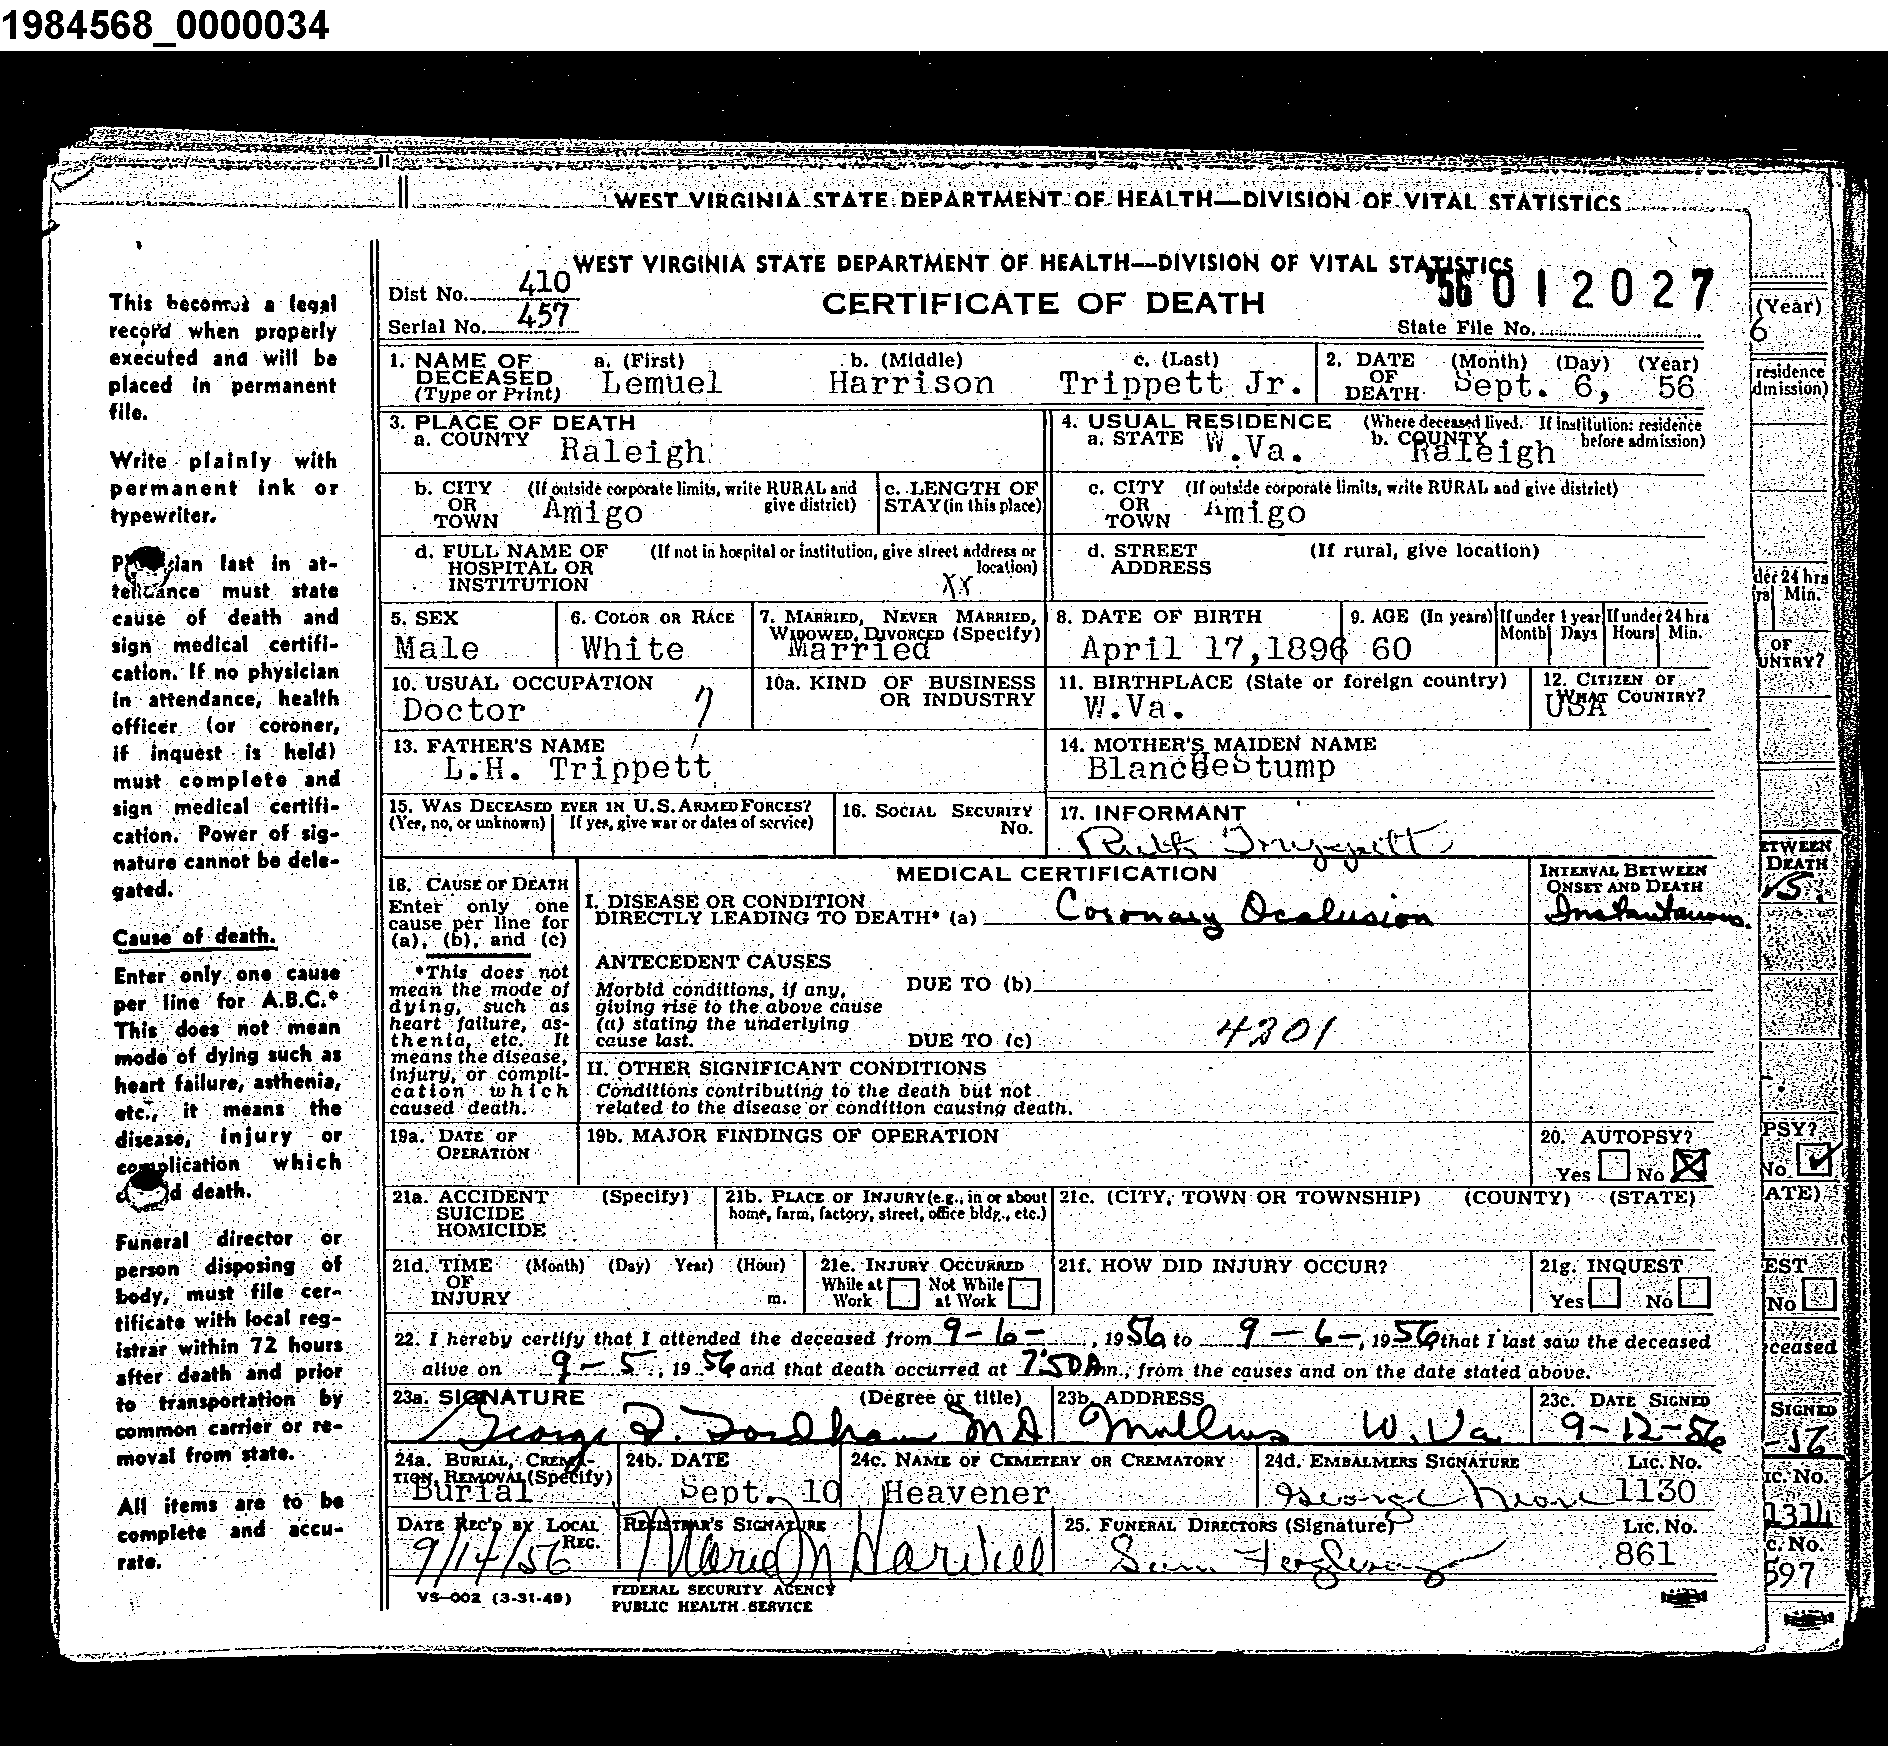 1984568_0000034
WEST VIRGINIA STATE DEPARTMENT OF HEALTH—DIVISION OF VITAL STATISTICS
This becomes a legal
record when properly
executed and will be
placed in permanent
file.
Write plainly with
permanent ink or
typewriter.
last in at-
must state
cause of death and
sign medical certifi-
cation. If no physician
in attendance, health
officer (or coroner,
if inquest is held)
must complete and
sign medical certifi-
cation. Power of sig-
nature cannot be dele-
gated.
Cause of death.
Enter only one cause
per line for A.B.C.*
This does not mean
mode of dying such as
heart failure, asthenia,
etc., it means the
disease, injury or
complication which
death.
Funeral director or
person disposing of
body, must file cer-
tificate with local reg-
istrar within 72 hours
after death and prior
to transportation by
common carrier or re-
moval from state.
All items are to be
complete and accu-
rate.
WEST VIRGINIA STATE DEPARTMENT OF HEALTH—DIVISION OF VITAL STATISTICS
Dist No. 410
Serial No. 457
CERTIFICATE OF DEATH
'56 012027
State File No.
1. NAME OF DECEASED (Type or Print) a. (First) Lemuel b. (Middle) Harrison c. (Last) Trippett Jr.
2. DATE OF DEATH (Month) (Day) (Year) Sept. 6, 56
3. PLACE OF DEATH
a. COUNTY Raleigh
4. USUAL RESIDENCE (Where deceased lived. If institution: residence before admission)
a. STATE W.Va. b. COUNTY Raleigh
b. CITY OR TOWN (If outside corporate limits, write RURAL and give district) Amigo
c. LENGTH OF STAY (in this place)
c. CITY OR TOWN (If outside corporate limits, write RURAL and give district) Amigo
d. FULL NAME OF HOSPITAL OR INSTITUTION (If not in hospital or institution, give street address or location)
d. STREET ADDRESS (If rural, give location)
5. SEX Male
6. COLOR OR RACE White
7. MARRIED, NEVER MARRIED, WIDOWED, DIVORCED (Specify) Married
8. DATE OF BIRTH April 17,1896
9. AGE (In years) 60
If under 1 year Month Days
If under 24 hrs Hours Min.
10. USUAL OCCUPATION Doctor
10a. KIND OF BUSINESS OR INDUSTRY
11. BIRTHPLACE (State or foreign country) W.Va.
12. CITIZEN OF WHAT COUNTRY? USA
13. FATHER'S NAME L.H. Trippett
14. MOTHER'S MAIDEN NAME Blanche Stump
15. WAS DECEASED EVER IN U.S. ARMED FORCES? (Yes, no, or unknown) If yes, give war or dates of service)
16. SOCIAL SECURITY No.
17. INFORMANT Ruth Trippett
MEDICAL CERTIFICATION
18. CAUSE OF DEATH
Enter only one cause per line for (a), (b), and (c)
*This does not mean the mode of dying, such as heart failure, asthenia, etc. It means the disease, injury, or complication which caused death.
I. DISEASE OR CONDITION DIRECTLY LEADING TO DEATH* (a) Coronary Occlusion
INTERVAL BETWEEN ONSET AND DEATH Instantaneous.
ANTECEDENT CAUSES
Morbid conditions, if any, giving rise to the above cause (a) stating the underlying cause last.
DUE TO (b)
DUE TO (c) 4201
II. OTHER SIGNIFICANT CONDITIONS
Conditions contributing to the death but not related to the disease or condition causing death.
19a. DATE OF OPERATION
19b. MAJOR FINDINGS OF OPERATION
20. AUTOPSY? Yes No X
21a. ACCIDENT SUICIDE HOMICIDE (Specify)
21b. PLACE OF INJURY (e.g., in or about home, farm, factory, street, office bldg., etc.)
21c. (CITY, TOWN OR TOWNSHIP) (COUNTY) (STATE)
21d. TIME OF INJURY (Month) (Day) Year) (Hour) m.
21e. INJURY OCCURRED While at Work Not While at Work
21f. HOW DID INJURY OCCUR?
21g. INQUEST Yes No
22. I hereby certify that I attended the deceased from 9-6-, 1956 to 9-6-, 1956 that I last saw the deceased
alive on 9-5, 1956 and that death occurred at 7:50 A m., from the causes and on the date stated above.
23a. SIGNATURE (Degree or title) George Fordham MD
23b. ADDRESS Mullens W.Va
23c. DATE SIGNED 9-12-56
24a. BURIAL, CREMATION, REMOVAL (Specify) Burial
24b. DATE Sept. 10
24c. NAME OF CEMETERY OR CREMATORY Heavener
24d. EMBALMERS SIGNATURE George LIC. No. 1130
DATE REC'D BY LOCAL REC. 9/14/56
REGISTRAR'S SIGNATURE Marie Harwell
25. FUNERAL DIRECTORS (Signature) LIC. No. 861
VS-002 (3-31-49)
FEDERAL SECURITY AGENCY
PUBLIC HEALTH SERVICE
(Year)
6
residence
dmission)
der 24 hrs
Min.
OF
UNTRY?
ETWEEN
DEATH
PSY?
No
ATE)
EST
No
ceased
SIGNED
-56
IC. No.
C. No.
597